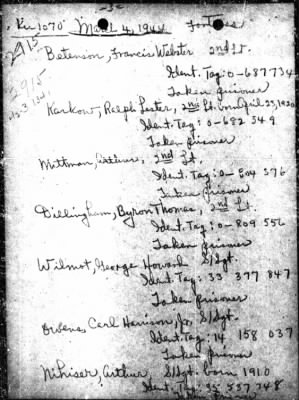 Ku 1070 March 4, 1944 Fortress
2915
Betenson, Francis Webster 2nd Lt.
Ident. Tag: O-687734
Taken prisoner
Karkow, Ralph Lester, 2nd Lt. born April 23, 1920
Ident. Tag: O-682 549
Taken prisoner
Mittman, 2nd Lt.
Ident. Tag: O- 576
Taken prisoner
Dillingham, Byron Thomas, 2nd Lt.
Ident. Tag: O-809 556
Taken prisoner
Wilmot, George Howard S/Sgt.
Ident. Tag: 33 377 847
Taken prisoner
Owens, Carl Harrison, Jr. S/Sgt.
Ident. Tag: 14 158 037
Taken prisoner
Nihiser, Arthur S/Sgt. born 1910
Ident. Tag: 35 537 748
Taken prisoner